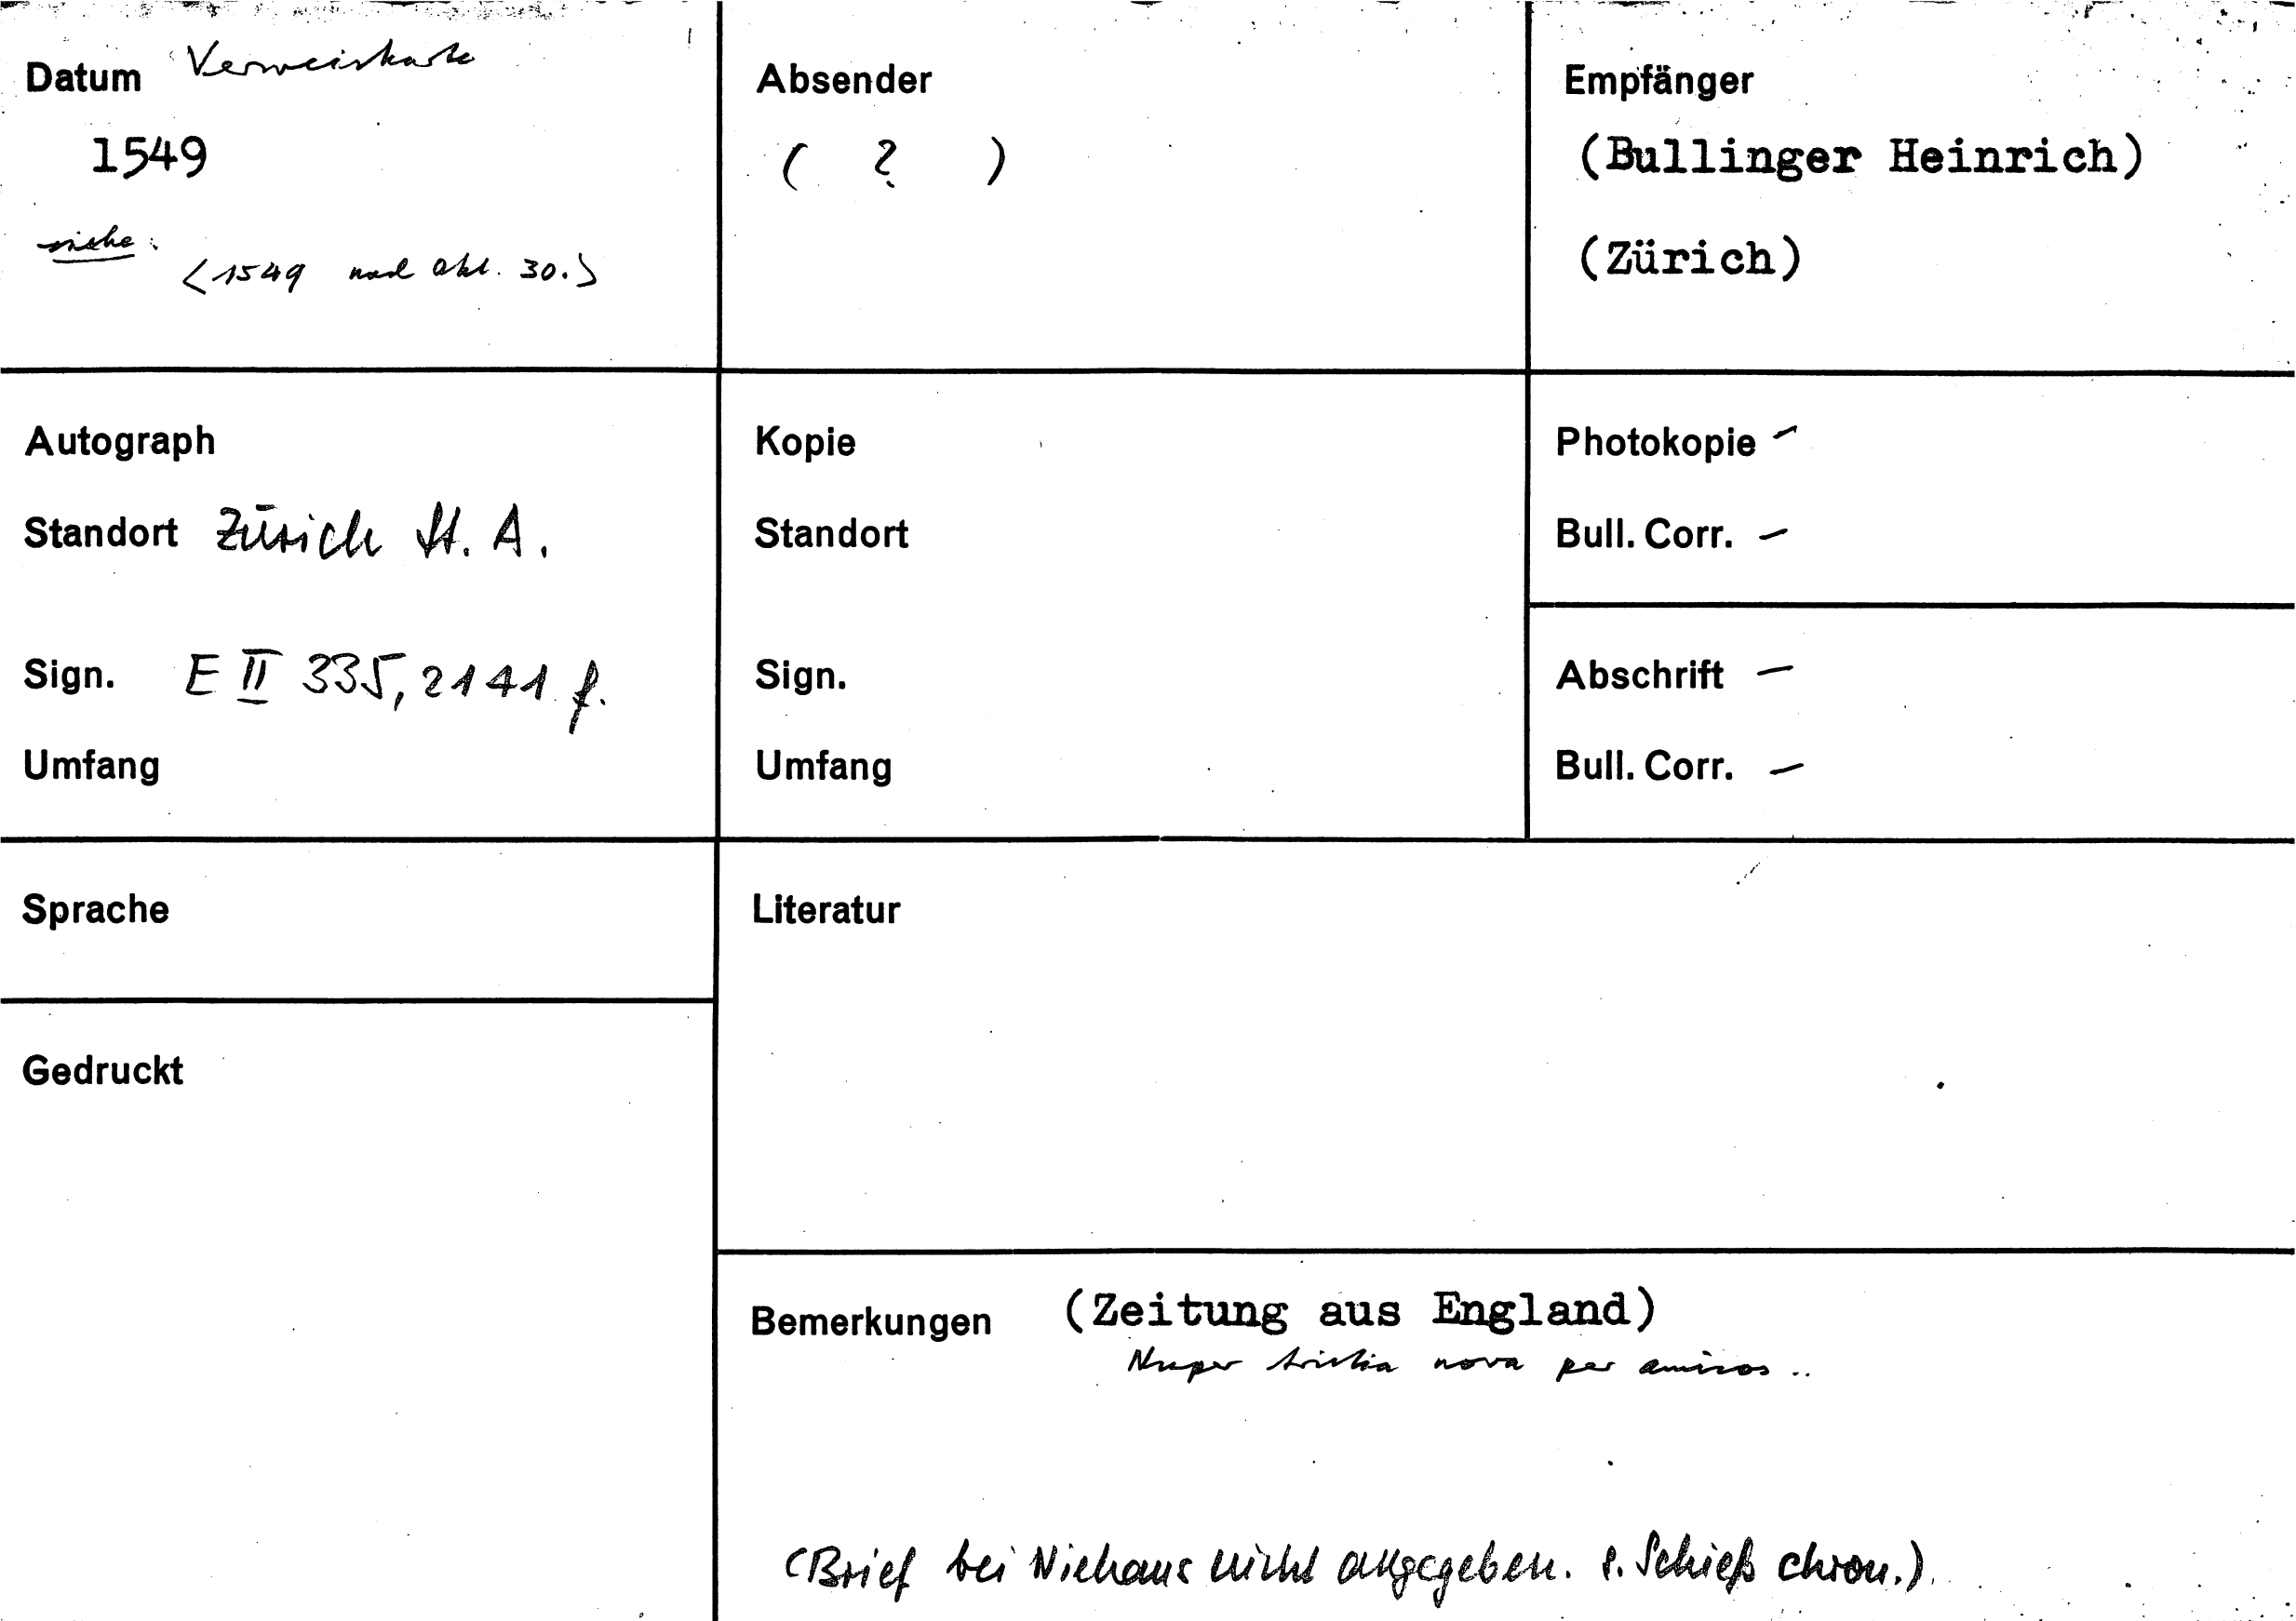 Datum Verweiskarte
1549
siehe:
<1549 nach Okt. 30.>
Absender
( ? )
Empfänger
(Bullinger Heinrich)
(Zürich)
Autograph
Standort Zürich St. A.
Sign. E II 335, 2141 f.
Umfang
Kopie
Standort
Sign.
Umfang
Photokopie –
Bull. Corr. –
Abschrift –
Bull. Corr. –
Sprache
Gedruckt
Literatur
Bemerkungen (Zeitung aus England)
Nuper tristia nova per amicos ..
(Brief bei Niehans nicht angegeben. s. Schieß chron.)